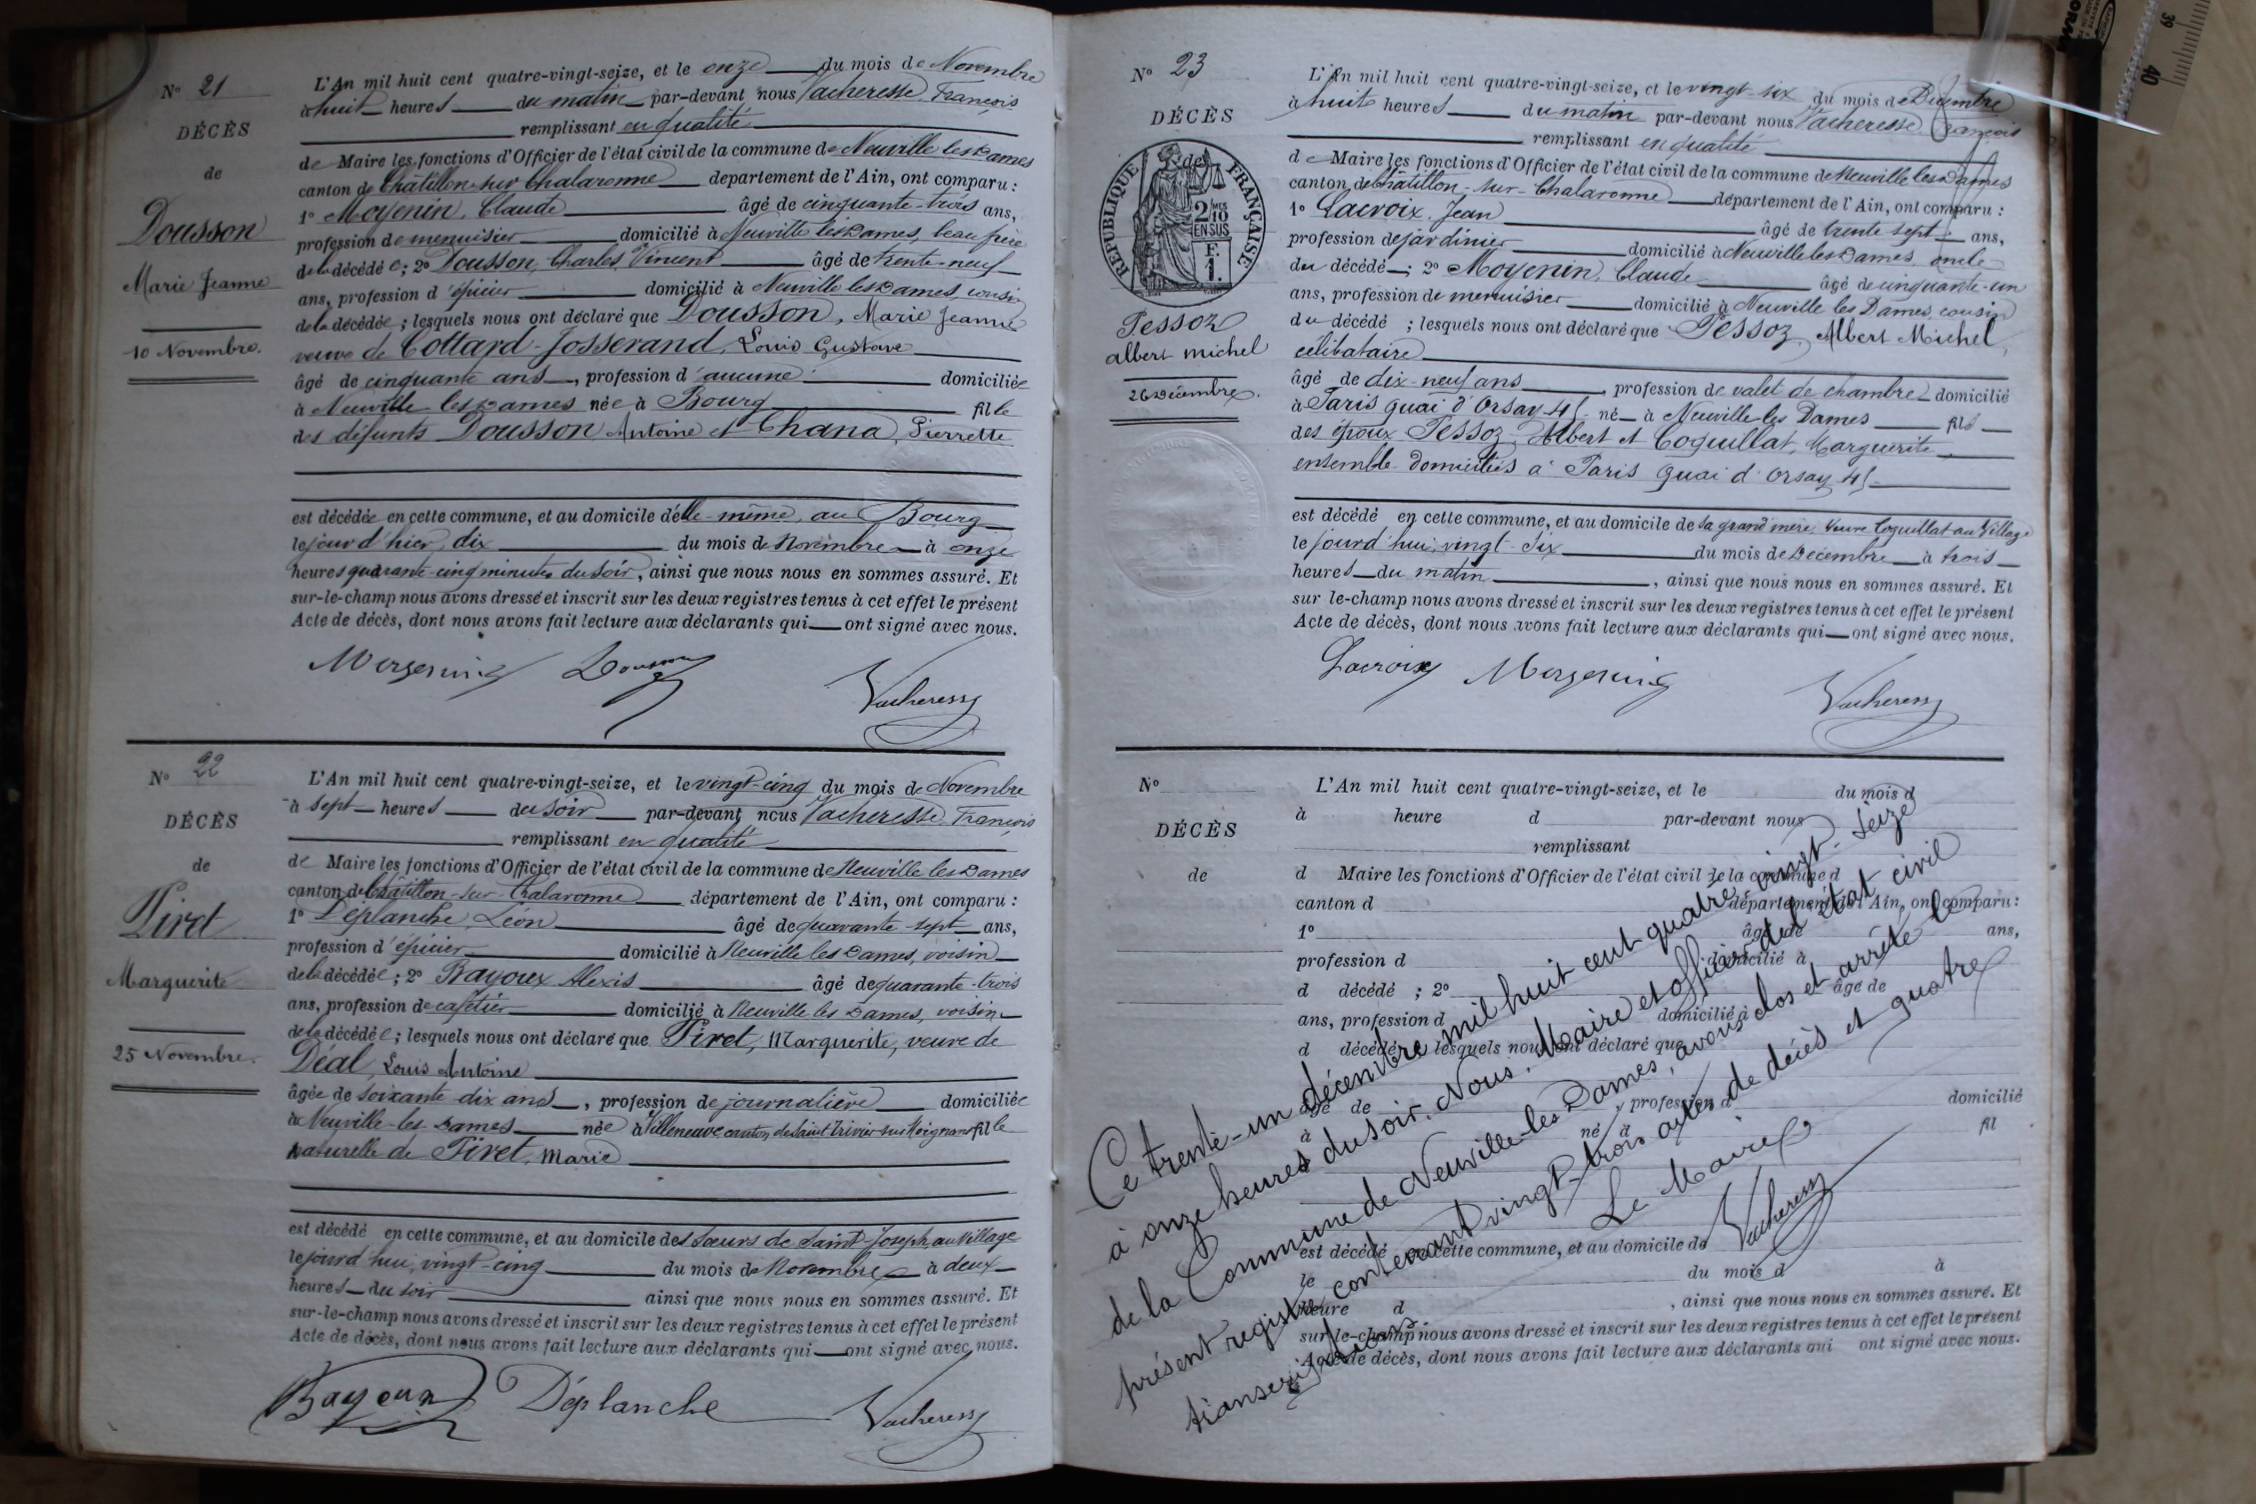 N° 21
DÉCÈS
de
Dousson
Marie Jeanne
10 Novembre.
L'An mil huit cent quatre-vingt-seize, et le onze du mois de Novembre
à huit heures du matin par-devant nous Vacheresse, François
remplissant en qualité
de Maire les fonctions d'Officier de l'état civil de la commune de Neuville les Dames
canton de Châtillon-sur-Chalaronne département de l'Ain, ont comparu :
1° Moyenin, Claude âgé de cinquante-trois ans,
profession de menuisier domicilié à Neuville les Dames, beau frère
de la décédée ; 2° Dousson, Charles Vincent âgé de trente-neuf
ans, profession d'épicier domicilié à Neuville les Dames, cousin
de la décédée ; lesquels nous ont déclaré que Dousson, Marie Jeanne
veuve de Cottard-Josserand, Louis Gustave
âgé de cinquante ans, profession d'aucune domiciliée
à Neuville les Dames née à Bourg fille
des défunts Dousson Antoine et Chana, Pierrette
est décédée en cette commune, et au domicile d'elle-même, au Bourg
le jour d'hier, dix du mois de Novembre à onze
heures quarante-cinq minutes du soir, ainsi que nous nous en sommes assuré. Et
sur-le-champ nous avons dressé et inscrit sur les deux registres tenus à cet effet le présent
Acte de décès, dont nous avons fait lecture aux déclarants qui ont signé avec nous.
Dousson Vacheresse
N° 22
DÉCÈS
de
Piret
Marguerite
25 Novembre.
L'An mil huit cent quatre-vingt-seize, et le vingt-cinq du mois de Novembre
à sept heures du soir par-devant nous Vacheresse, François
remplissant en qualité
de Maire les fonctions d'Officier de l'état civil de la commune de Neuville les Dames
canton de Châtillon-sur-Chalaronne département de l'Ain, ont comparu :
1° Déplanche, Léon âgé de quarante-sept ans,
profession d'épicier domicilié à Neuville les Dames, voisin
de la décédée ; 2° Bayoux Alexis âgé de quarante-trois
ans, profession de cafetier domicilié à Neuville les Dames, voisin
de la décédée ; lesquels nous ont déclaré que Piret, Marguerite, veuve de
Déal, Louis Antoine
âgée de soixante-dix ans, profession de journalière domiciliée
à Neuville-les-Dames née à Villeneuve canton de Saint Trivier sur Moignans fille
naturelle de Piret, Marie
est décédé en cette commune, et au domicile des Sœurs de Saint-Joseph au Village
le jourd'hui, vingt-cinq du mois de Novembre à deux
heures du soir ainsi que nous nous en sommes assuré. Et
sur-le-champ nous avons dressé et inscrit sur les deux registres tenus à cet effet le présent
Acte de décès, dont nous avons fait lecture aux déclarants qui ont signé avec nous.
Bayoux Déplanche Vacheresse
N° 23
DÉCÈS
de
RÉPUBLIQUE FRANÇAISE
2/10 EN SUS
F. 1.
Pessoz
Albert Michel
26 Décembre.
L'An mil huit cent quatre-vingt-seize, et le vingt-six du mois de Décembre
à huit heures du matin par-devant nous Vacheresse François
remplissant en qualité
de Maire les fonctions d'Officier de l'état civil de la commune de Neuville les Dames
canton de Châtillon-sur-Chalaronne département de l'Ain, ont comparu :
1° Lacroix, Jean âgé de trente sept ans,
profession de jardinier domicilié à Neuville les Dames oncle
du décédé ; 2° Moyenin, Claude âgé de cinquante-un
ans, profession de menuisier domicilié à Neuville les Dames, cousin
du décédé ; lesquels nous ont déclaré que Pessoz, Albert Michel,
célibataire
âgé de dix-neuf ans profession de valet de chambre domicilié
à Paris quai d'Orsay 45 né à Neuville-les Dames fils
des époux Pessoz, Albert et Coquillat, Marguerite
ensemble domiciliés à Paris quai d'Orsay 45
est décédé en cette commune, et au domicile de sa grand'mère, Veuve Coquillat au Village
le jourd'hui, vingt-six du mois de Décembre à trois
heures du matin, ainsi que nous nous en sommes assuré. Et
sur le-champ nous avons dressé et inscrit sur les deux registres tenus à cet effet le présent
Acte de décès, dont nous avons fait lecture aux déclarants qui ont signé avec nous.
Lacroix Vacheresse
N°
DÉCÈS
de
L'An mil huit cent quatre-vingt-seize, et le du mois d
à heure d par-devant nous
remplissant
d Maire les fonctions d'Officier de l'état civil de la commune d
canton d département de l'Ain, ont comparu :
1° âgé de ans,
profession d domicilié à
d décédé ; 2° âgé de
ans, profession d domicilié à
d décédé lesquels nous ont déclaré que
âgé de , profession d domicilié
à né à fil
est décédé en cette commune, et au domicile de
le du mois d à
heure d , ainsi que nous nous en sommes assuré. Et
sur-le-champ nous avons dressé et inscrit sur les deux registres tenus à cet effet le présent
Acte de décès, dont nous avons fait lecture aux déclarants qui ont signé avec nous.
Ce trente-un décembre mil huit cent quatre-vingt-seize
à onze heures du soir, Nous, Maire et officier de l'état civil
de la Commune de Neuville-les Dames, avons clos et arrêté le
présent registre contenant vingt-trois actes de décès et quatre
transcriptions.
Le Maire
Vacheresse